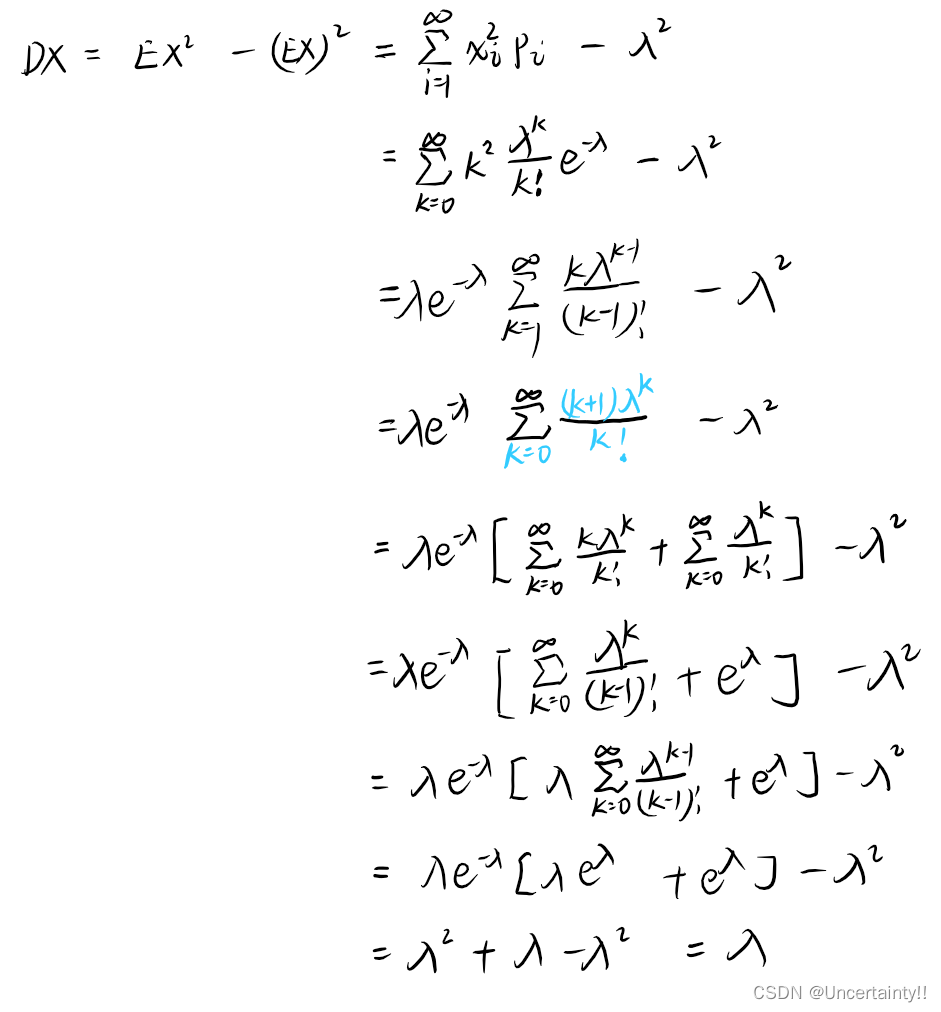 DX = EX² − (EX)² = ∑_{i=1}^{∞} x_i² p_i − λ²
= ∑_{k=0}^{∞} k² \frac{λ^k}{k!} e^{-λ} − λ²
= λe^{-λ} ∑_{k=1}^{∞} \frac{kλ^{k-1}}{(k-1)!} − λ²
= λe^{-λ} ∑_{k=0}^{∞} \frac{(k+1)λ^k}{k!} − λ²
= λe^{-λ} [ ∑_{k=0}^{∞} \frac{kλ^k}{k!} + ∑_{k=0}^{∞} \frac{λ^k}{k!} ] − λ²
= λe^{-λ} [ ∑_{k=0}^{∞} \frac{λ^k}{(k-1)!} + e^λ ] − λ²
= λe^{-λ} [ λ ∑_{k=0}^{∞} \frac{λ^{k-1}}{(k-1)!} + e^λ ] − λ²
= λe^{-λ} [ λe^λ + e^λ ] − λ²
= λ² + λ − λ² = λ
CSDN @Uncertainty!!